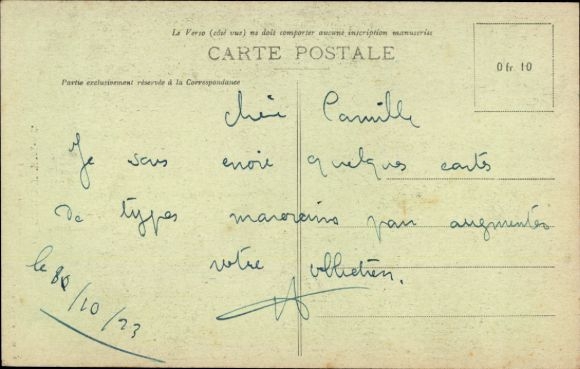 Le Verso (côté vue) ne doit comporter aucune inscription manuscrite
CARTE POSTALE
Partie exclusivement réservée à la Correspondance
0 fr. 10
chère Camille
Je vous envoie quelques cartes
de types marocains pour augmenter
votre collection.
le /10/23